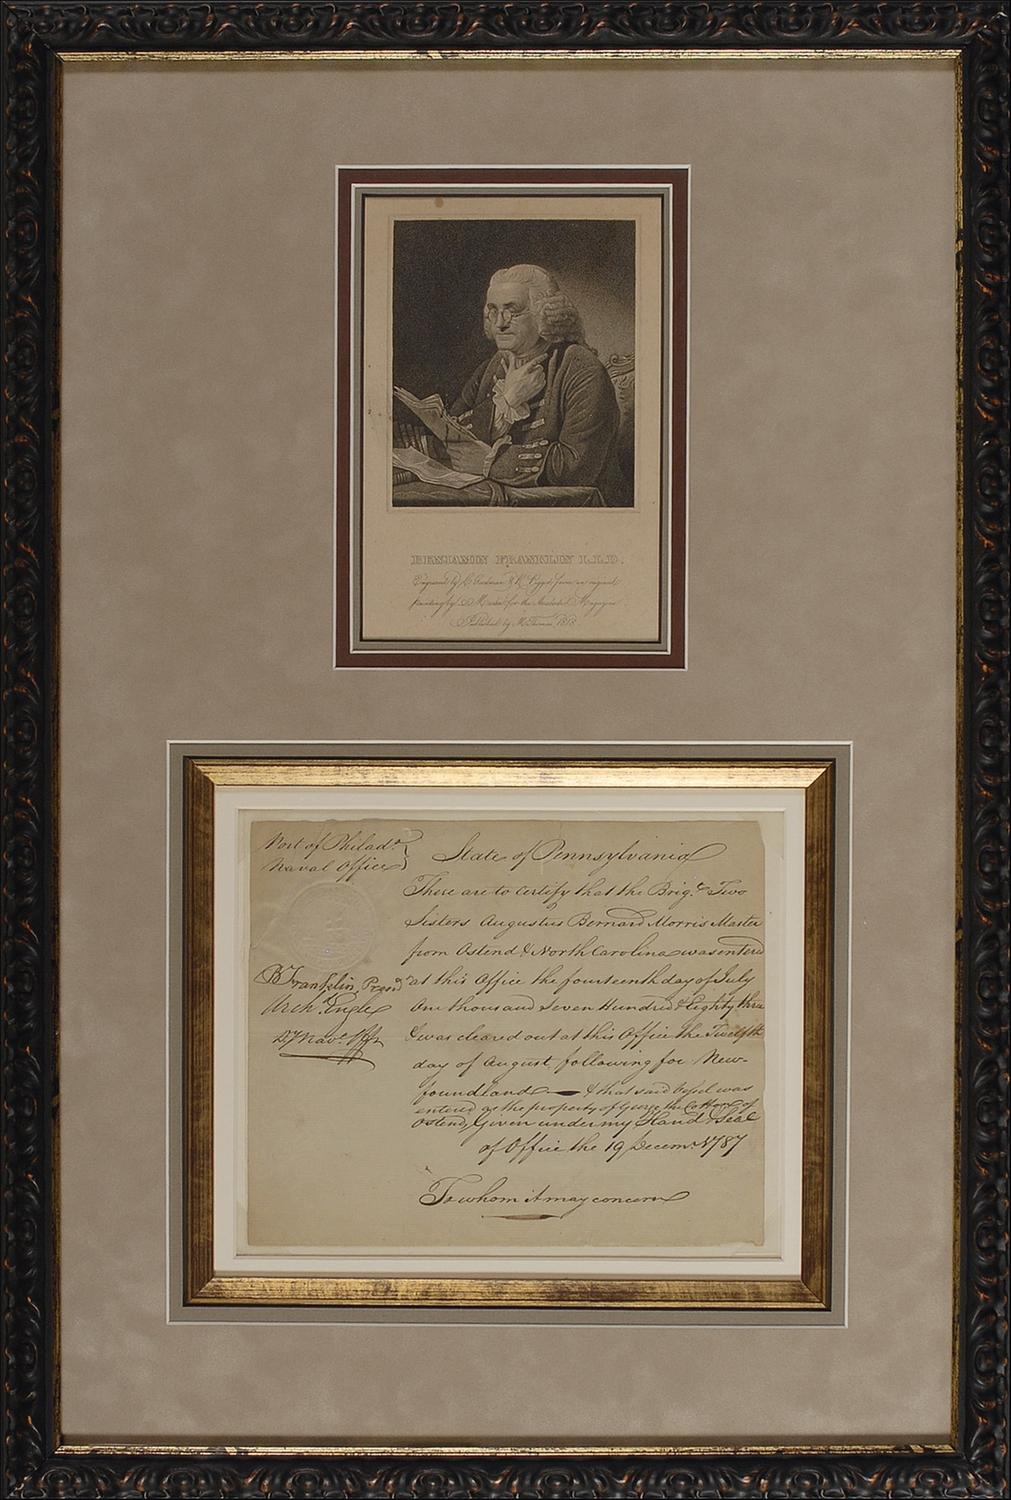 BENJAMIN FRANKLIN L.L.D.
Engraved by C. Goodman & R. Piggot from an original
painting by Martin for the Analectic Magazine
Published by M. Thomas 1818
Port of Philada.
Naval Office
State of Pennsylvania
These are to Certify that the Brig.e Two
Sisters Augustus Bernard Morris Master
from Ostend & North Carolina was entered
B Franklin, Presidt at this Office the fourteenth day of July
Arch.d Engle One thousand Seven Hundred & Eighty three
Dy Nav.l Offr & was cleared out at this Office the Twelfth
day of August following for New-
foundland — & that said vessel was
entered as the property of George the of
Ostend, Given under my Hand & Seal
of Office the 19 Decemr. 1787
To whom it may concern